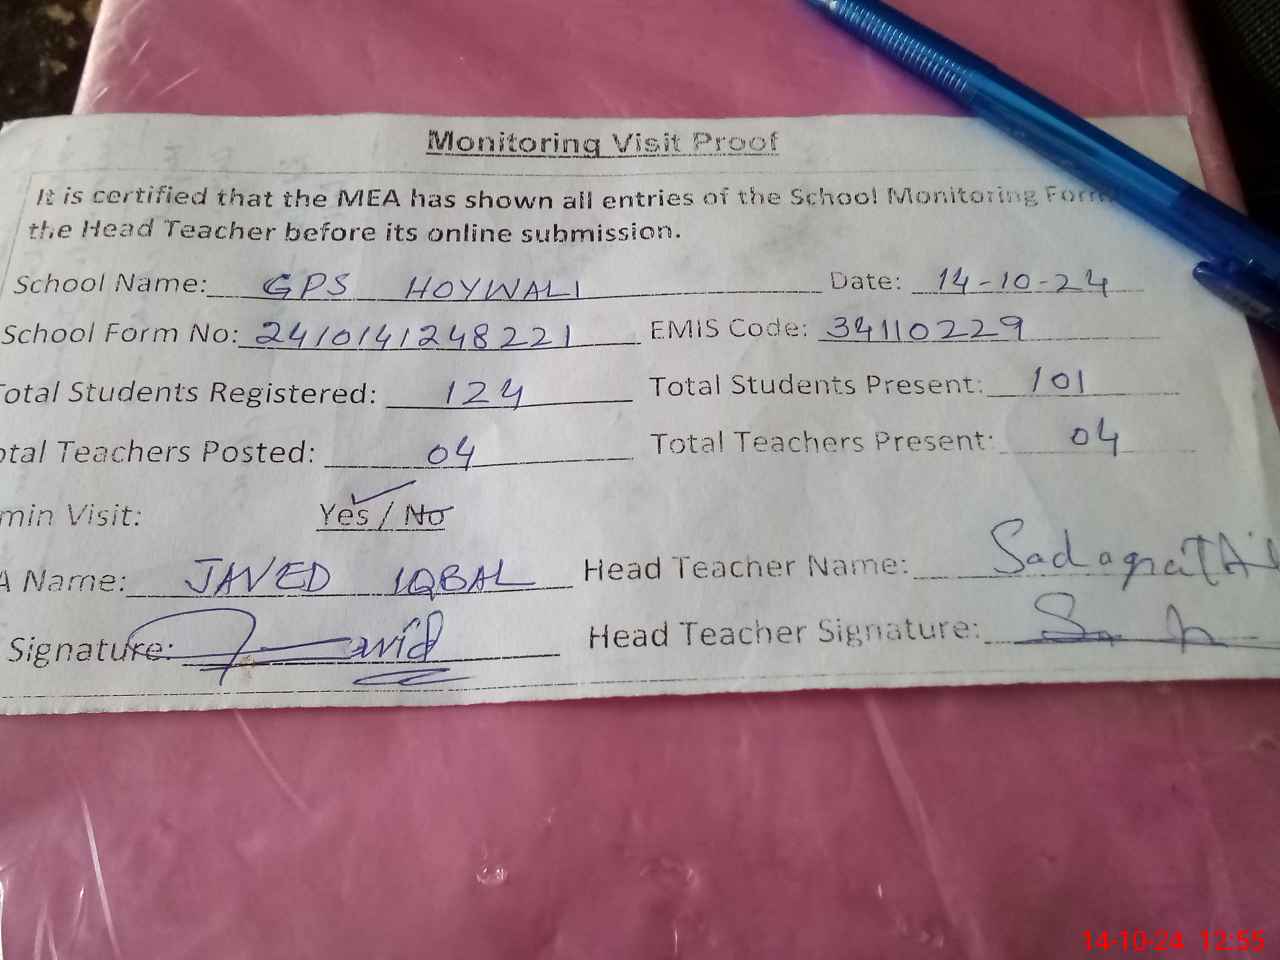 Monitoring Visit Proof
It is certified that the MEA has shown all entries of the School Monitoring Form
the Head Teacher before its online submission.
School Name: GPS HOYWALI Date: 14-10-24
School Form No: 2410141248221 EMIS Code: 34110229
Total Students Registered: 124 Total Students Present: 101
otal Teachers Posted: 04 Total Teachers Present: 04
min Visit: Yes / No
A Name: JAVED IQBAL Head Teacher Name:
Signature: Javid Head Teacher Signature:
14-10-24 12:55